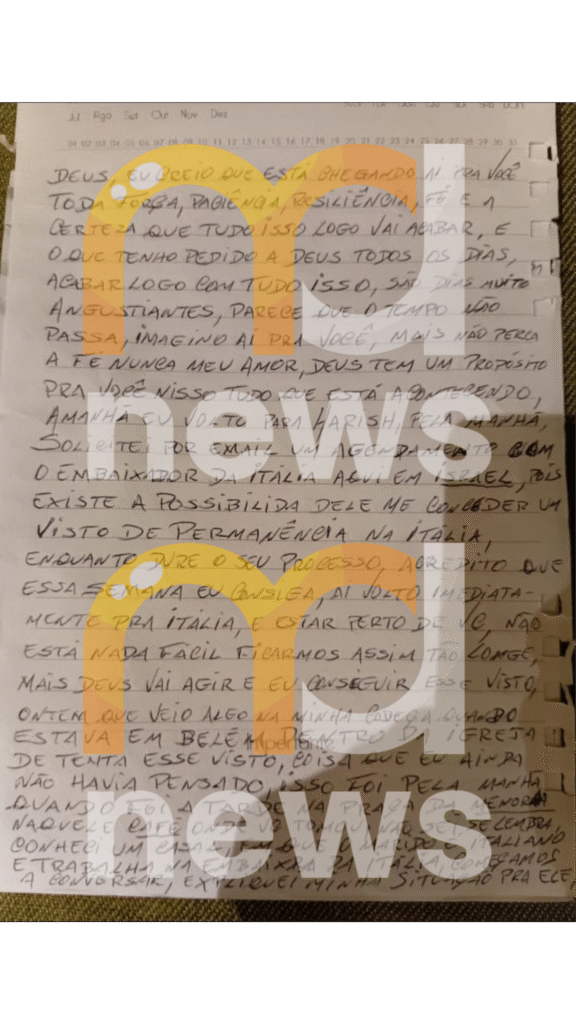 Jul Ago Set Out Nov Dez
01 02 03 04 05 06 07 08 09 10 11 12 13 14 15 16 17 18 19 20 21 22 23 24 25 26 27 28 29 30 31
DEUS, EU CREIO QUE ESTÁ CHEGANDO AÍ PRA VOCÊ
TODA FORÇA, PACIÊNCIA, RESILIÊNCIA, FÉ E A
CERTEZA QUE TUDO ISSO LOGO VAI ACABAR, E
O QUE TENHO PEDIDO A DEUS TODOS OS DIAS,
ACABAR LOGO COM TUDO ISSO, SÃO DIAS MUITO
ANGUSTIANTES, PARECE QUE O TEMPO NÃO
PASSA, IMAGINO AÍ PRA VOCÊ, MAIS NÃO PERCA
A FÉ NUNCA MEU AMOR, DEUS TEM UM PROPÓSITO
PRA VOCÊ NISSO TUDO QUE ESTÁ ACONTECENDO,
AMANHÃ EU VOLTO PARA HARISH, PELA MANHÃ,
SOLICITEI POR EMAIL UM AGENDAMENTO COM
O EMBAIXADOR DA ITÁLIA AQUI EM ISRAEL, POIS
EXISTE A POSSIBILIDA DELE ME CONCEDER UM
VISTO DE PERMANÊNCIA NA ITÁLIA,
ENQUANTO DURE O SEU PROCESSO, ACREDITO QUE
ESSA SEMANA EU CONSIGA, AÍ VOLTO IMEDIATA-
MENTE PRA ITÁLIA, E ESTAR PERTO DE VC, NÃO
ESTÁ NADA FÁCIL FICARMOS ASSIM TÃO LONGE,
MAIS DEUS VAI AGIR E EU CONSEGUIR ESSE VISTO,
ONTEM QUE VEIO ALGO NA MINHA CABEÇA QUANDO
ESTAVA EM BELÉM DENTRO DA IGREJA
Importante
DE TENTA ESSE VISTO, COISA QUE EU AINDA
NÃO HAVIA PENSADO, ISSO FOI PELA MANHÃ
QUANDO FOI A TARDE NA PRAÇA DA MENORÁ
NAQUELE CAFÉ ONDE VC TOMOU, NÃO SEI SE LEMBRA,
CONHECI UM CASAL EM QUE O MARIDO É ITALIANO
E TRABALHA NA EMBAIXADA DA ITÁLIA, COMEÇAMOS
A CONVERSAR, EXPLIQUEI MINHA SITUAÇÃO PRA ELE
md
news
md
news